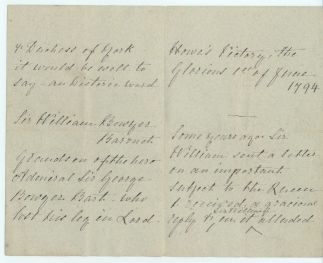 & Duchess of York
it would be well to
say - an Historic word
Sir William Bowyer
Baronet
Grandson of the hero
Admiral Sir George
Bowyer Bart. who
lost his leg in Lord
Howe's Victory, the
Glorious 1st of June
1794
Some years ago Sir
William sent a letter
on an important
subject to the Queen
& received a gracious
reply &
alluded